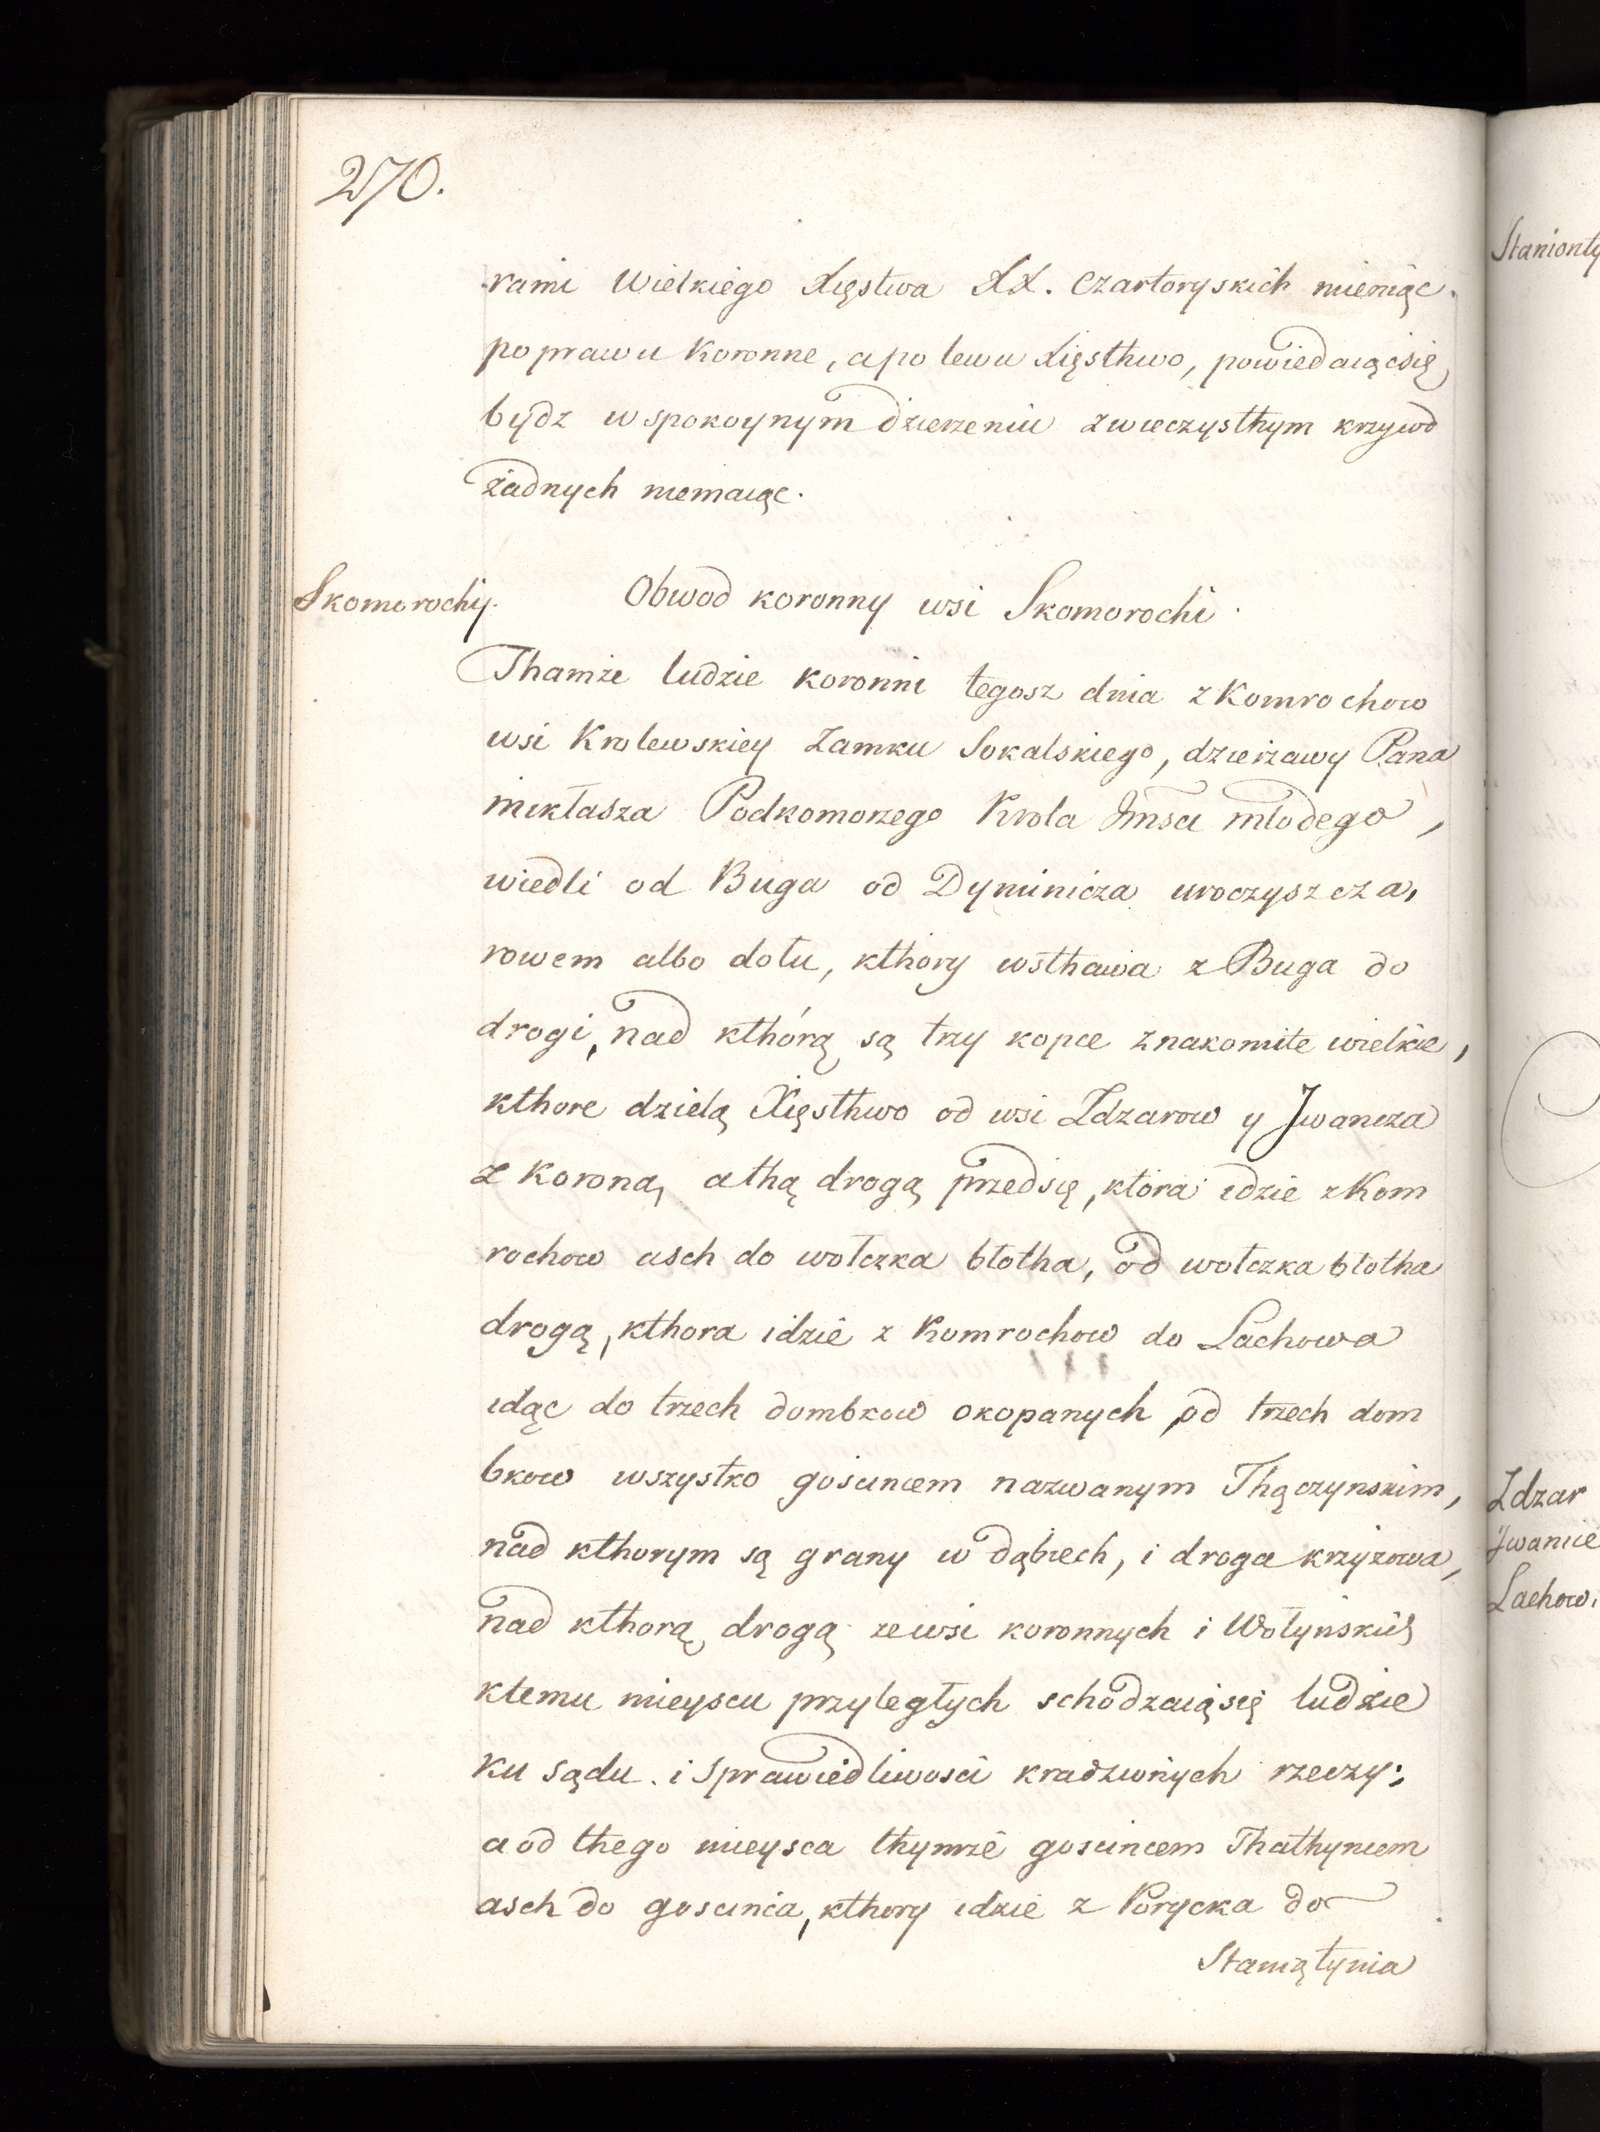 270.
rami Wielkiego Xięstwa XX. Czartoryskich mieniąc
poprawu Koronne, apo lewu Xięsthwo, powiedaiącsię
bydz wspokoynym dzierzeniu zwieczysthym krzywd
żadnych niemaiąc.
Skomorochy.
Obwod koronny wsi Skomorochi.
Thamże ludzie koronni tegosz dnia z Komrochow
wsi Krolewskiey Zamku Sokalskiego, dzierżawy Pana
mikłasza Podkomorzego Krola młodego,
wiedli od Buga od Dyminicza uroczyszcza,
rowem albo dołu, kthory wsthawa z Buga do
drogi, nad kthórą są trzy kopce znakomite wielkie,
kthore dzielą Xięsthwo od wsi Zdzarow y Jwancza
z Koroną, athą drogą przedsię, ktora idzie z Kom
rochow asch do wołczka błotha, od wołczka błotha
drogą, kthora idzie z Komrochow do Lachowa
idąc do trzech dombkow okopanych, od trzech dom
bkow wszystko gosuncem nazwanym Thęczynskim,
nad kthorym są grany w dąbiech, i droga krzyżowa,
nad kthorą drogą zewsi koronnych i Wołyńskich
ktemu mieyscu przyległych schodzaiąsię ludzie
ku sądu i sprawiedliwosci kradzionych rzeczy;
a od thego mieysca thymże gosuncem Thathyncem
asch do gosunca, kthory idzie z Porycka do
Stamątynia
Stanionty
Zdzar
Jwanie
Lachow.